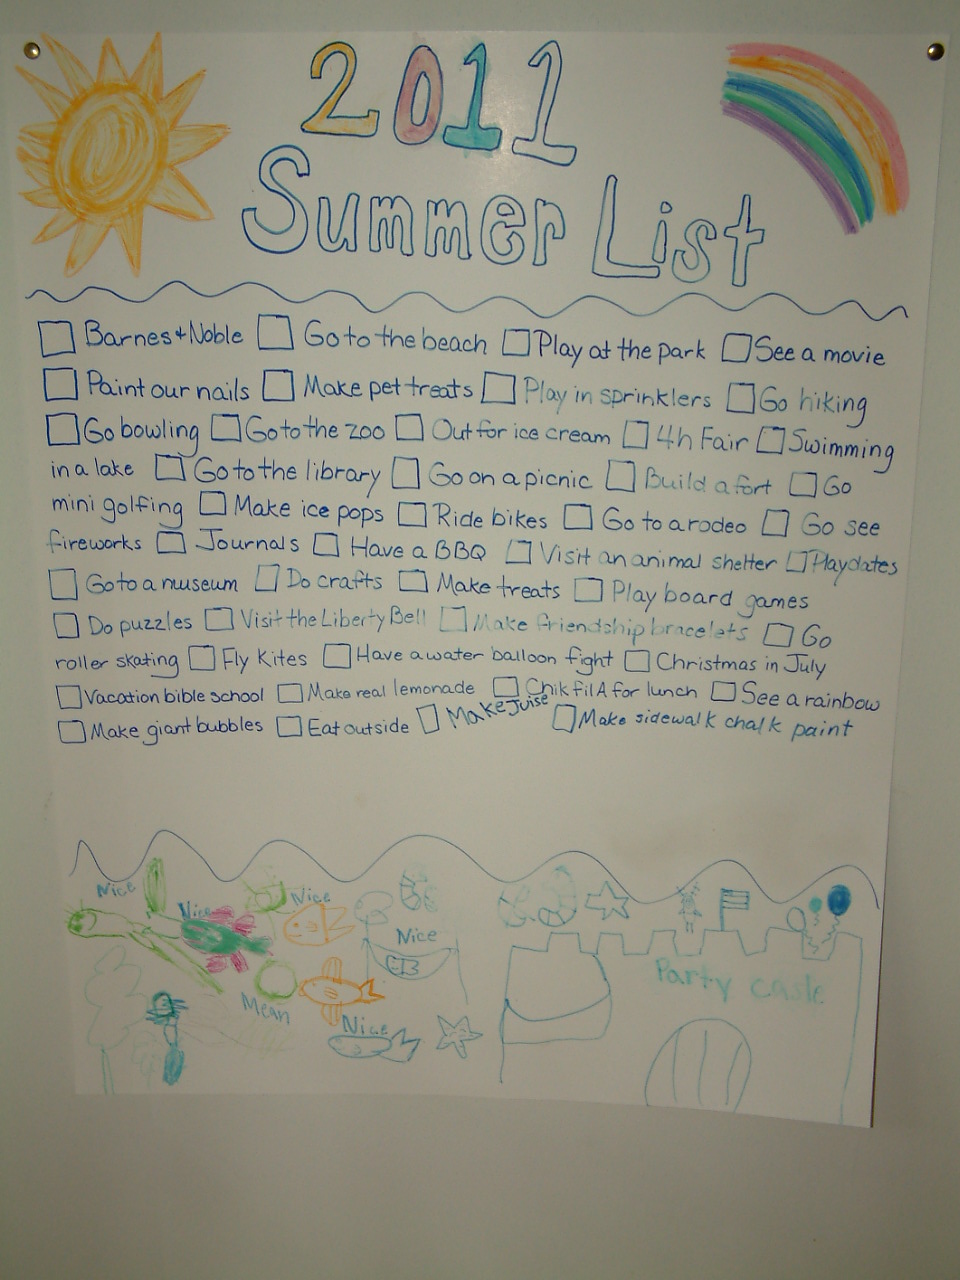 2011
Summer List
Barnes + Noble Go to the beach Play at the park See a movie
Paint our nails Make pet treats Play in sprinklers Go hiking
Go bowling Go to the zoo Out for ice cream 4h Fair Swimming
in a lake Go to the library Go on a picnic Build a fort Go
mini golfing Make ice pops Ride bikes Go to a rodeo Go see
fireworks Journals Have a BBQ Visit an animal shelter Playdates
Go to a museum Do crafts Make treats Play board games
Do puzzles Visit the Liberty Bell Make friendship bracelets Go
roller skating Fly Kites Have a water balloon fight Christmas in July
Vacation bible school Make real lemonade Chik fil A for lunch See a rainbow
Make giant bubbles Eat outside Make Juise Make sidewalk chalk paint
Nice
Nice
Nice
Nice
Party casle
Mean
Nice